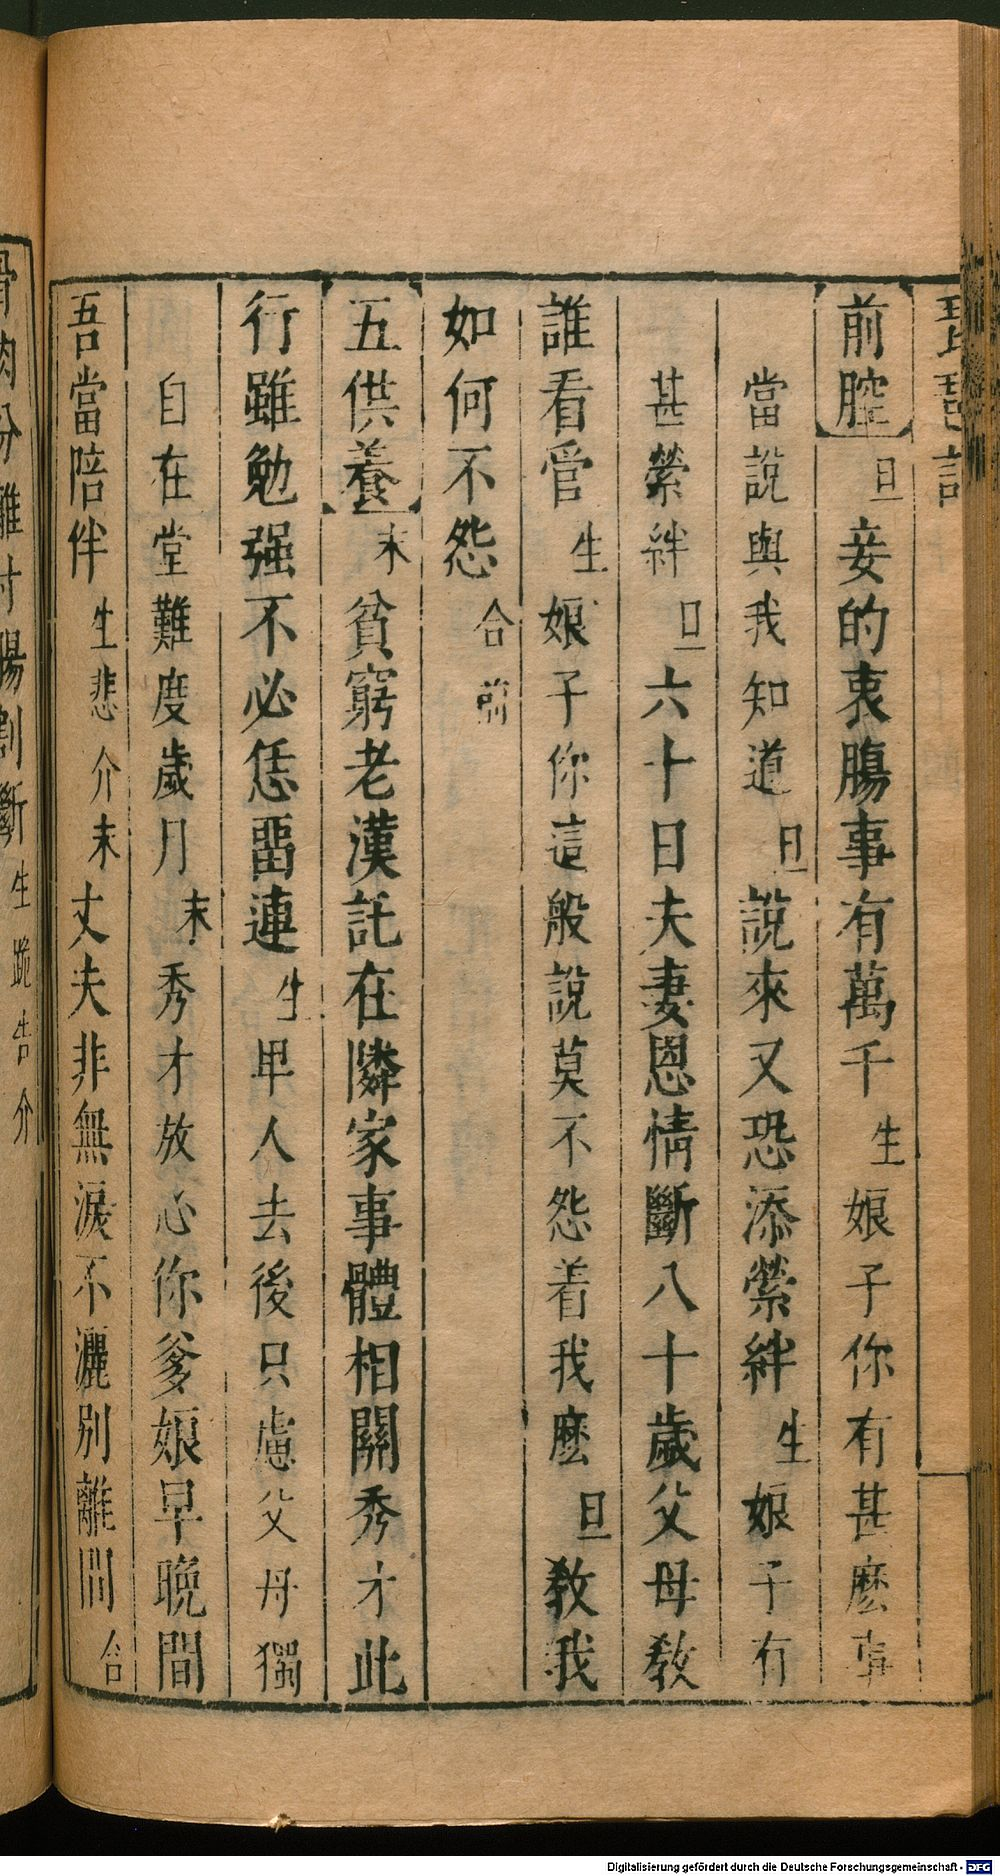 琵琶記
前腔旦妾的衷腸事有萬千生娘子你有甚麽事
當說與我知道旦說來又恐添縈絆生娘子有
甚縈絆旦六十日夫妻恩情斷八十歲父母敎
誰看管生娘子你這般說莫不怨着我麽旦敎我
如何不怨合前
五供養末貧窮老漢託在隣家事體相關秀才此
行雖勉强不必恁畱連生早人去後只慮父母獨
自在堂難度歲月末秀才放心你爹娘早晚間
吾當陪伴生悲介末丈夫非無淚不灑別離間合
骨肉分離寸腸割斷生跪告介
Digitalisierung gefördert durch die Deutsche Forschungsgemeinschaft - DFG